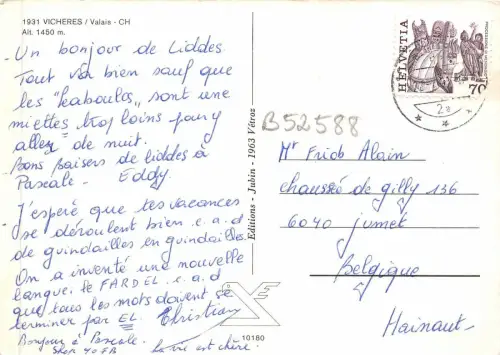 1931 VICHERES / Valais - CH
Alt. 1450 m.
Un bonjour de Liddes.
Tout va bien sauf que
les "kaboulos" sont une
miettes trop loins pour y
aller de nuit.
Bons baisers de Liddes à
Pascale. Eddy.
J'espère que tes vacances
se déroulent bien c.a.d
de guindailles en guindailles.
On a inventé une nouvelle
langue, le FARDEL c.a.d
que tous les mots doivent se
terminer par EL. Christian
Bonjour à Pascale.
40 FB la vie est chère.
Editions - Jubin - 1963 Vétroz
10180
HELVETIA
70
B52588
Mr Friob Alain
chaussée de gilly 136
6040 jumet
Belgique
Hainaut.